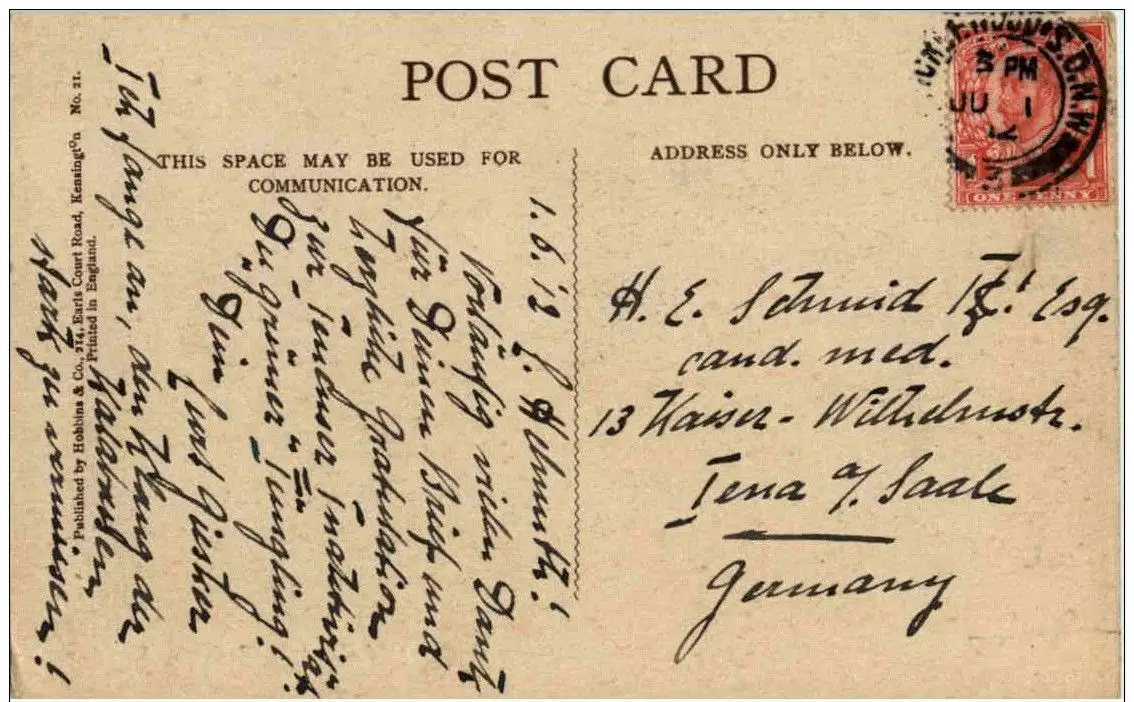 POST CARD
THIS SPACE MAY BE USED FOR
COMMUNICATION.
ADDRESS ONLY BELOW.
S.O.N.W.
3 PM
JU 1
12
ONE PENNY
H. E. Schmid Esq.
cand. med.
13 Kaiser-Wilhelmstr.
Jena a/ Saale
Germany
1.6.12
L. Helmuth!
Vorläufig vielen Dank
für Deinen Brief und
herzliche Gratulation
zur
Du „grüner" Jüngling!
Dein
Kurt
Ich fange an, den Klang der
stark zu vermissen!
Published by Hobbins & Co., 214, Earls Court Road, Kensington No. 21.
Printed in England.